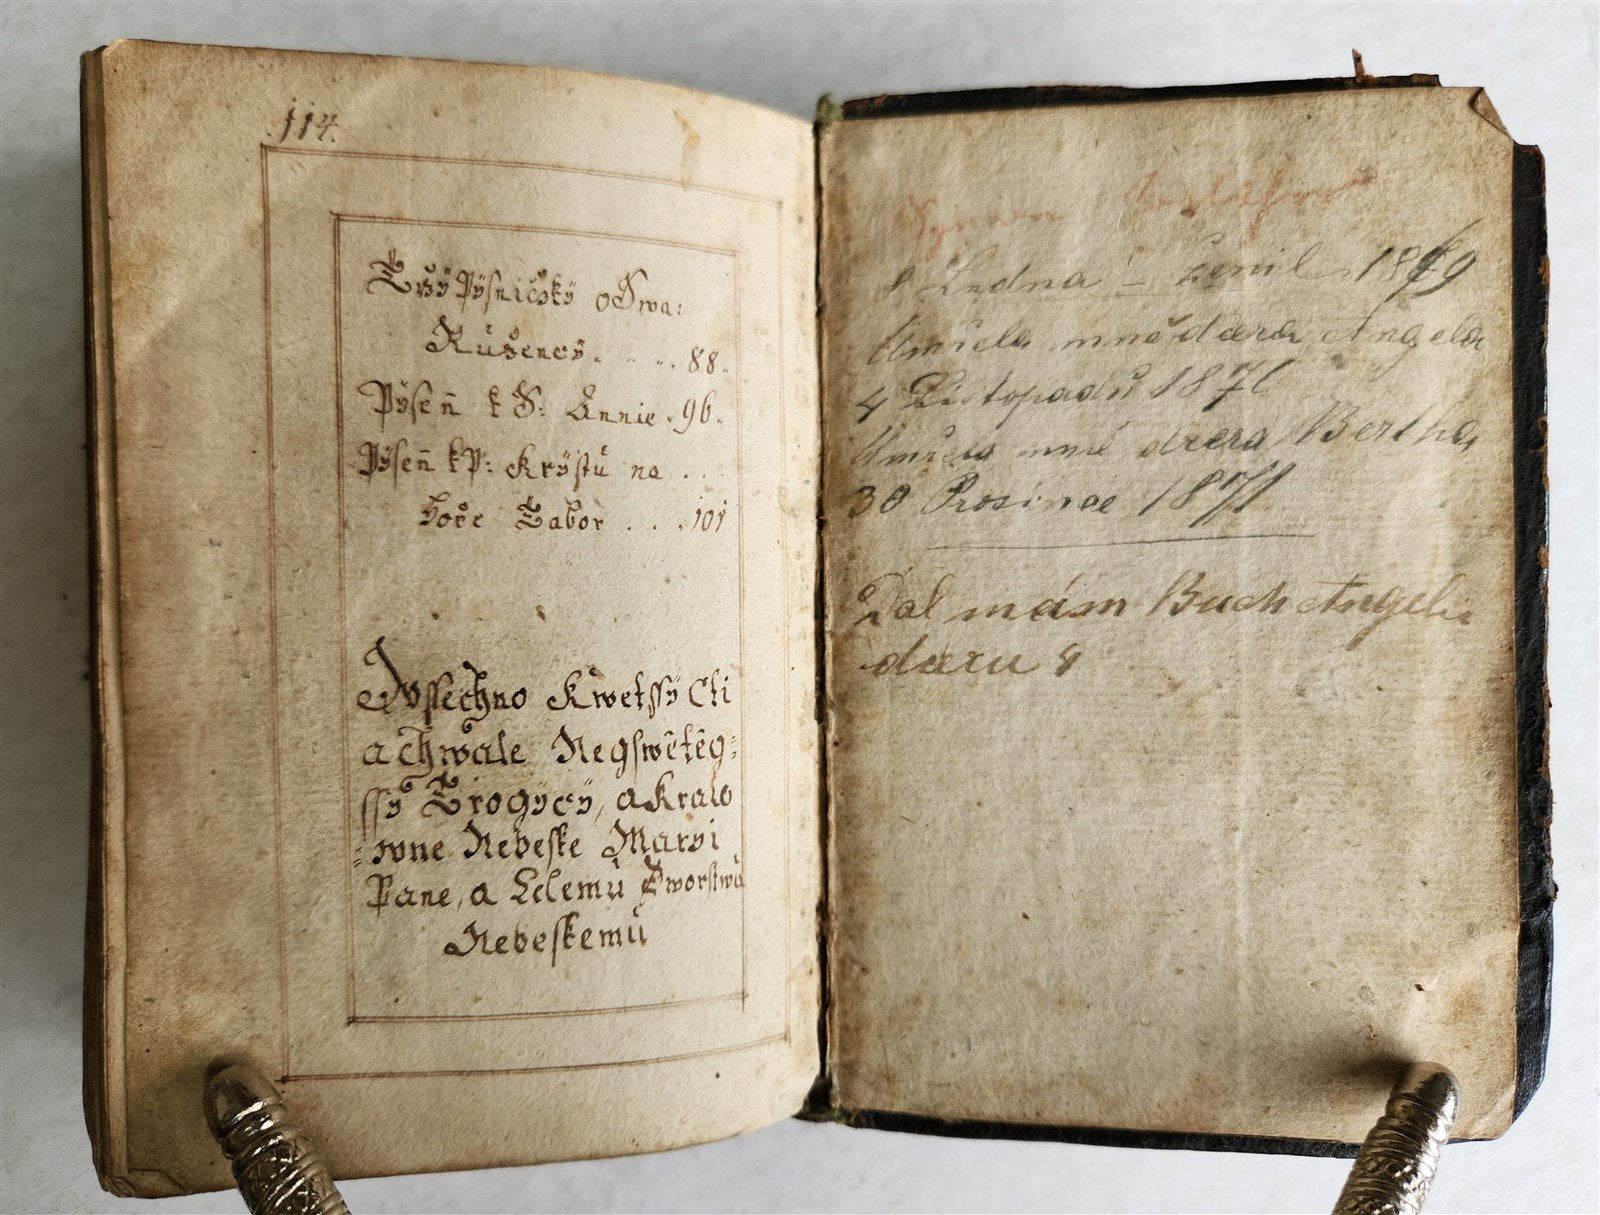 114.
Tržÿ Pÿsničkÿ o Swa:
Růžencÿ. . . . 88.
Pÿseň k S: Annie . 96.
Pÿseň k P: Krÿstu na . . .
hoře Tabor . . . 101
Wssechno Kwetssÿ Cti
a chwale Negswětěg=
ssÿ Trogÿcÿ, a Kralo
=wne Nebeske Maryi
Pane, a Celemu Dworstwu
Nebeskemu
8 Ledna 18 9
Umřela mně dcera Angela
4 Listopadu 1871
Umřela mně dcera Bertha
30 Prosince 1871
Dal mám Buch Angeli
daru 8